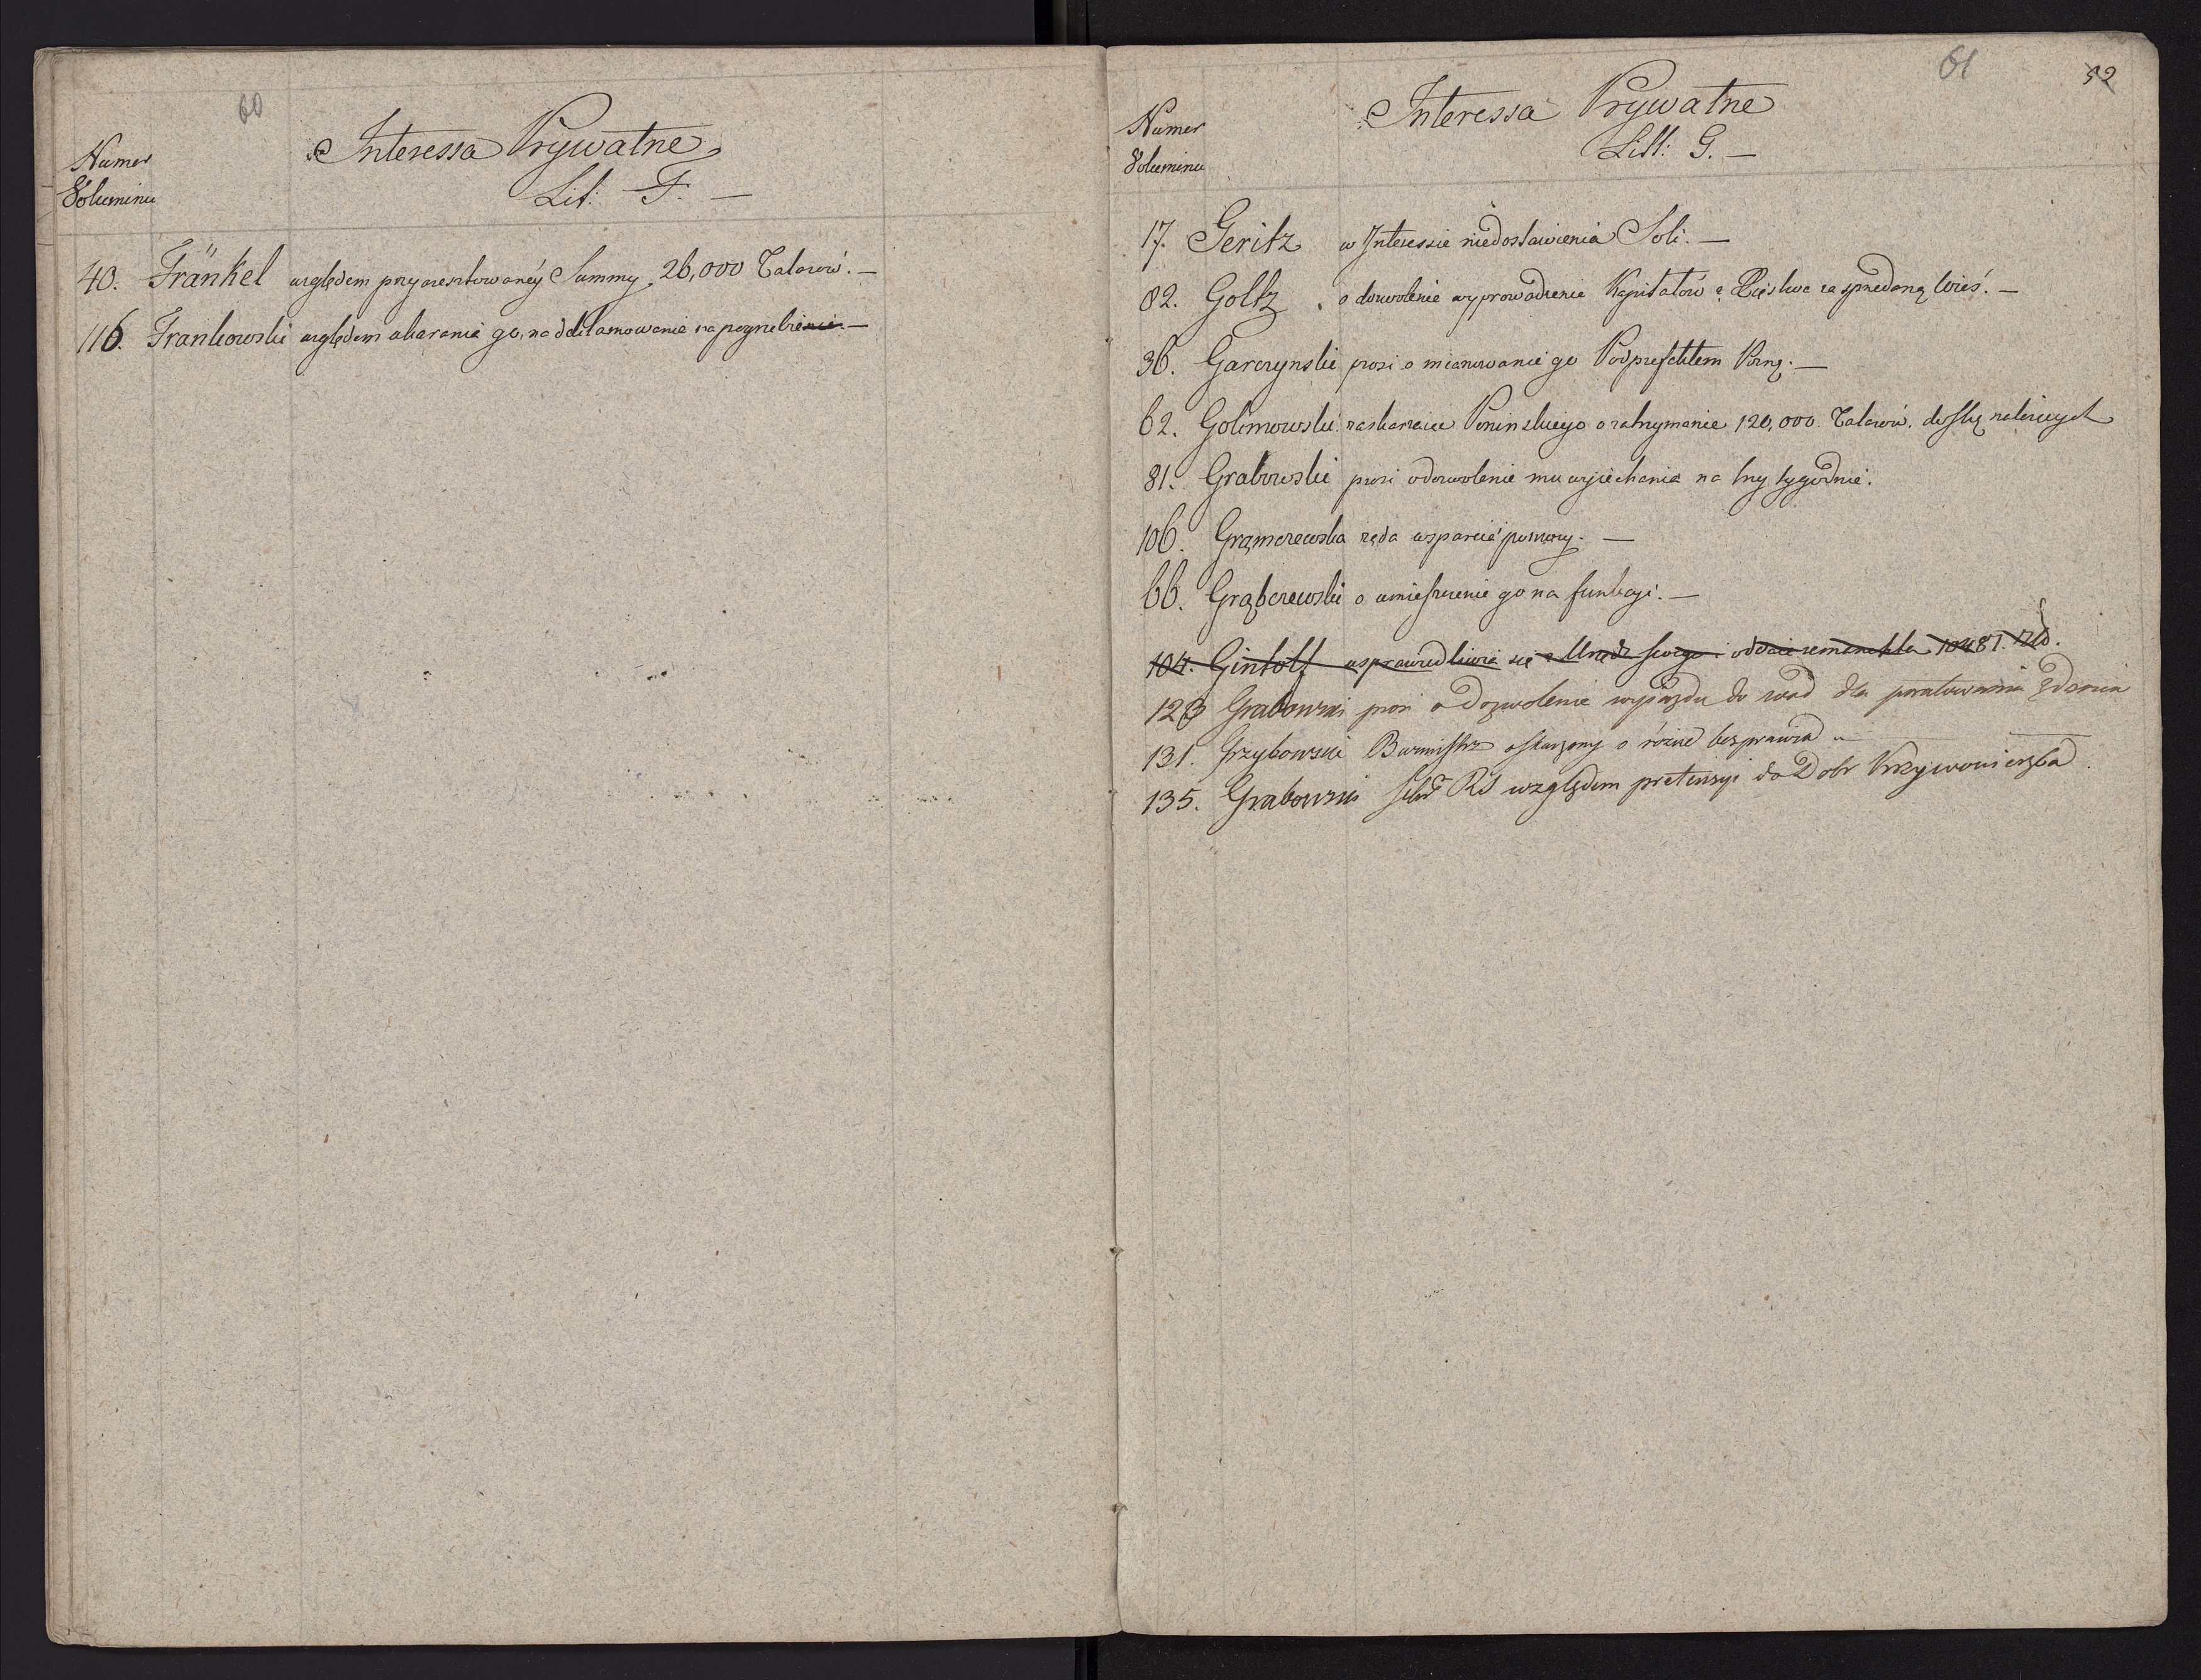 60
Numer
Voluminu
Interessa Prywatne
Lit. F. —
40. Fränkel względem przyaresztowanéy Summy 26,000 Talarów. —
116. Frankowski względem ukarania go, na
61
52
Numer
Voluminu
Interessa Prywatne
Litt: G. —
17. Geritz w Interessie niedostawienia Soli. —
82. Goltz o dozwolenie wyprowadzenie Kapitałów z Xięstwa za sprzedaną Wieś. —
36. Garczynski prosi o mianowanie go Podprefektem Pozn. —
62. Golimowski zaskarza Poninskiego o zatrzymanie 120,000 Talarów
81. Grabowski prosi o dozwolenie mu wyjechania na trzy tygodnie.
106. Grąmczewska żąda wsparcia pomocy. —
66. Grąbczewski o umieszczenie go na funkcyi. —
104. Gintolf usprawiedliwia się z Urzędu swego i oddaie remanentu 10481. złd.
123 Grabowski prosi o dozwolenie wyjazdu do wód dla poratowania zdrowia
131. Grzybowski Burmistrz oskarzony o różne bezprawia „
135. Grabowski względem pretensyi do Dobr Krzywonierzba.